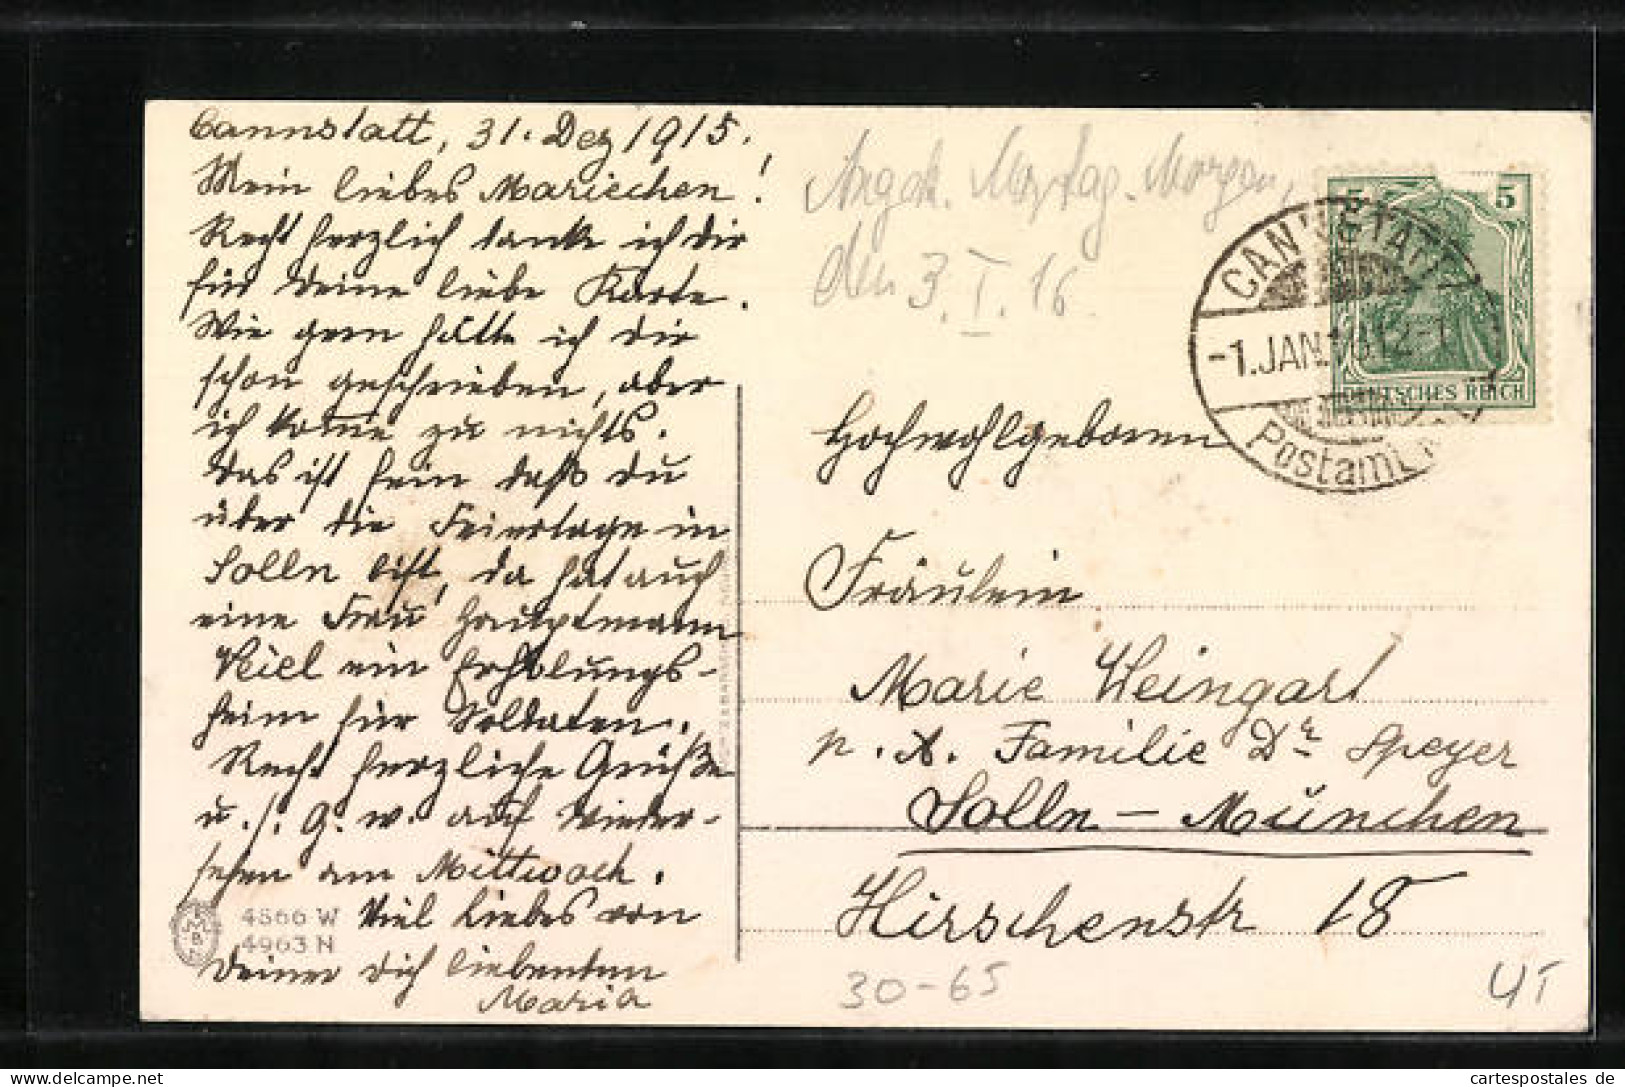 Cannstatt, 31. Dez 1915.
Mein liebes Mariechen!
Recht herzlich danke ich Dir
für Deine liebe Karte.
Wie gern hätte ich Dir
schon geschrieben, aber
ich kome zu nichts.
Das ist fein daß Du
über die Feiertage in
Solln bist, da hat auch
eine Frau Hauptmann
Veiel ein Erholungs-
heim für Soldaten.
Recht herzliche Grüße
u. s. G. w. auf Wieder-
sehen am Mittwoch.
Viel Liebes von
Deiner Dich liebenden
Maria
4866 W
4963 N
Angek. Montag. Morgen,
den 3. I. 16
5 5
DEUTSCHES REICH
CANNSTATT
-1.JAN.16 12-1
Postamt
Hochwohlgeboren
Fräulein
Marie Weingart
p. A. Familie Dr. Speyer
Solln - München
Hirschenstr 18
30-65
UT
cartespostales de